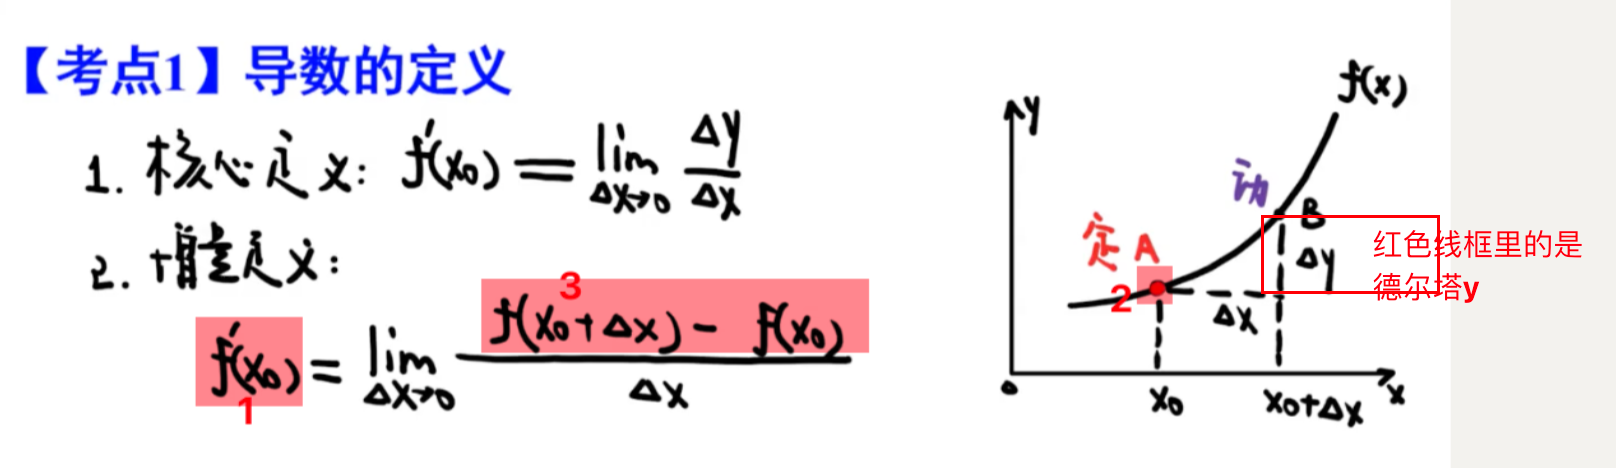 【考点1】导数的定义
1. 核心定义: f'(x₀) = lim Δx→0 Δy/Δx
2. 增量定义:
f'(x₀) = lim Δx→0 f(x₀+Δx) - f(x₀) / Δx
1
3
y
f(x)
动
B
定 A
2
Δy
Δx
红色线框里的是
德尔塔y
0
x₀
x₀+Δx
x